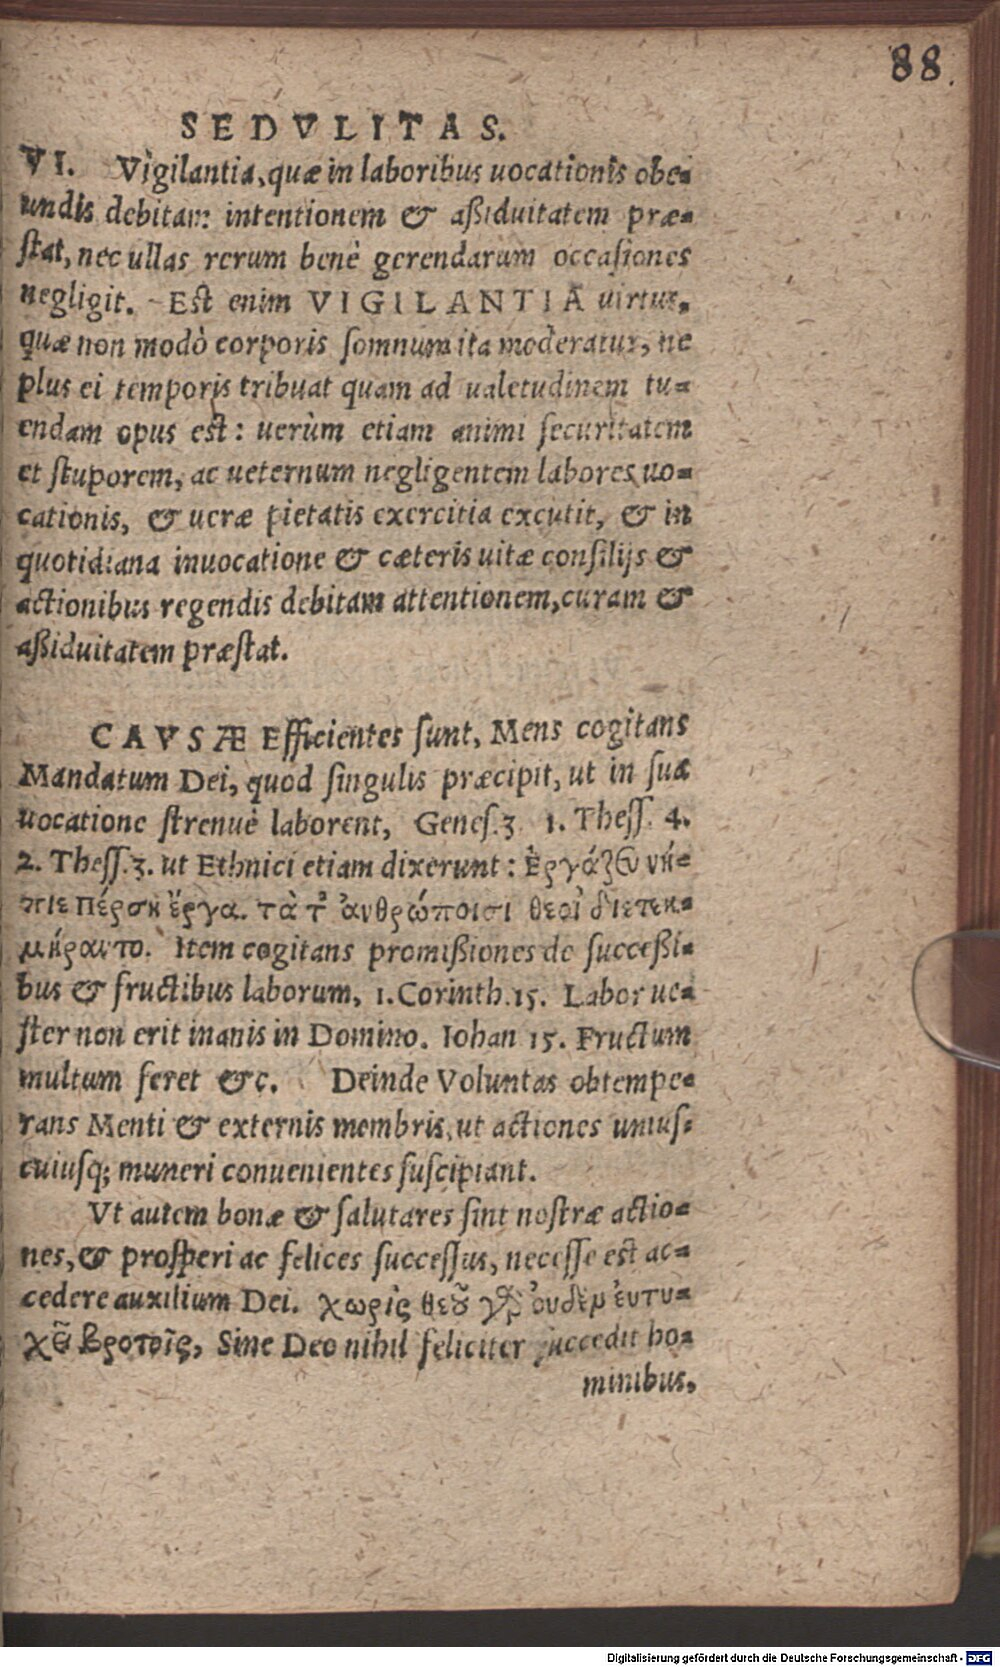 88
SEDVLITAS.
VI. Vigilantia, quæ in laboribus uocationis obe-
undis debitam intentionem & aßiduitatem præ-
stat, nec ullas rerum benè gerendarum occasiones
negligit. Est enim VIGILANTIA uirtus,
quæ non modò corporis somnum ita moderatur, ne
plus ei temporis tribuat quam ad ualetudinem tu-
endam opus est: uerùm etiam animi securitatem
et stuporem, ac ueternum negligentem labores uo-
cationis, & ueræ pietatis exercitia excutit, & in
quotidiana inuocatione & cæteris uitæ consilijs &
actionibus regendis debitam attentionem, curam &
aßiduitatem præstat.
CAVSÆ Efficientes sunt, Mens cogitans
Mandatum Dei, quod singulis præcipit, ut in sua
uocatione strenuè laborent, Genes. 3. 1. Thess. 4.
2. Thess. 3. ut Ethnici etiam dixerunt: Ἐργάζευ νή-
πιε πέρση ἔργα. τὰ τ' ἀνθρώποισι θεοὶ διετεκ-
μήραντο. Item cogitans promißiones de succeßi-
bus & fructibus laborum, 1. Corinth. 15. Labor ue-
ster non erit inanis in Domino. Iohan 15. Fructum
multum feret &c. Deinde Voluntas obtempe-
rans Menti & externis membris, ut actiones unius-
cuiusq; muneri conuenientes suscipiant.
Vt autem bonæ & salutares sint nostræ actio-
nes, & prosperi ac felices successus, necesse est ac-
cedere auxilium Dei. χωρὶς θεοῦ γὰρ ὀυδὲν ἐυτυ-
χεῖ βροτοῖς, Sine Deo nihil feliciter succedit ho-
minibus,
Digitalisierung gefördert durch die Deutsche Forschungsgemeinschaft - DFG